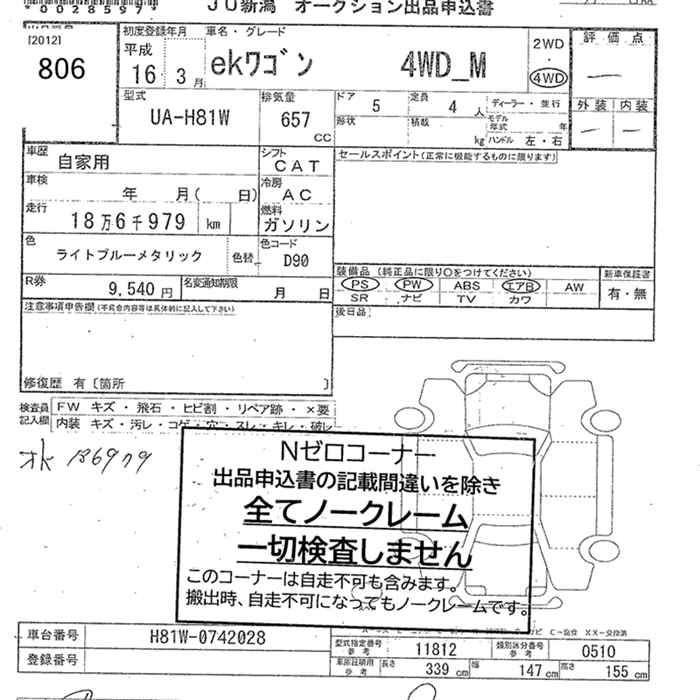 *00285974*
JU新潟 オークション出品申込書
[2012]
806
初度登録年月
平成
16年 3月
車名・グレード
ekワゴン 4WD_M
2WD
・
4WD
評価点
外装 内装
型式
UA-H81W
排気量
657
CC
ドア 5
定員 4人
ディーラー・並行
形状
積載 kg
モデル年式 年
ハンドル 左・右
車歴 自家用
シフト CAT
セールスポイント(正常に機能するものに限ります)
車検 年 月( 日)
冷房 AC
走行 18万6千979 km
燃料 ガソリン
色 ライトブルーメタリック 色替
色コード D90
R券 9,540円
名変通知期限 月 日
装備品(純正品に限り○をつけてください)
PS PW ABS エアB AW
SR ナビ TV カワ
新車保証書
有・無
注意事項申告欄(不具合内容等は具体的に記入して下さい)
後日品
修復歴 有〔箇所 〕
検査員記入欄
FW キズ・飛石・ヒビ割・リペア跡・×要
内装 キズ・汚レ・コゲ・穴・スレ・キレ・破レ
Nゼロコーナー
出品申込書の記載間違いを除き
全てノークレーム
一切検査しません
このコーナーは自走不可も含みます。
搬出時、自走不可になってもノークレームです。
車台番号 H81W-0742028
登録番号
型式指定番号 参考 11812
類別区分番号 参考 0510
車庫証明用 参考 長さ 339cm 幅 147cm 高さ 155cm